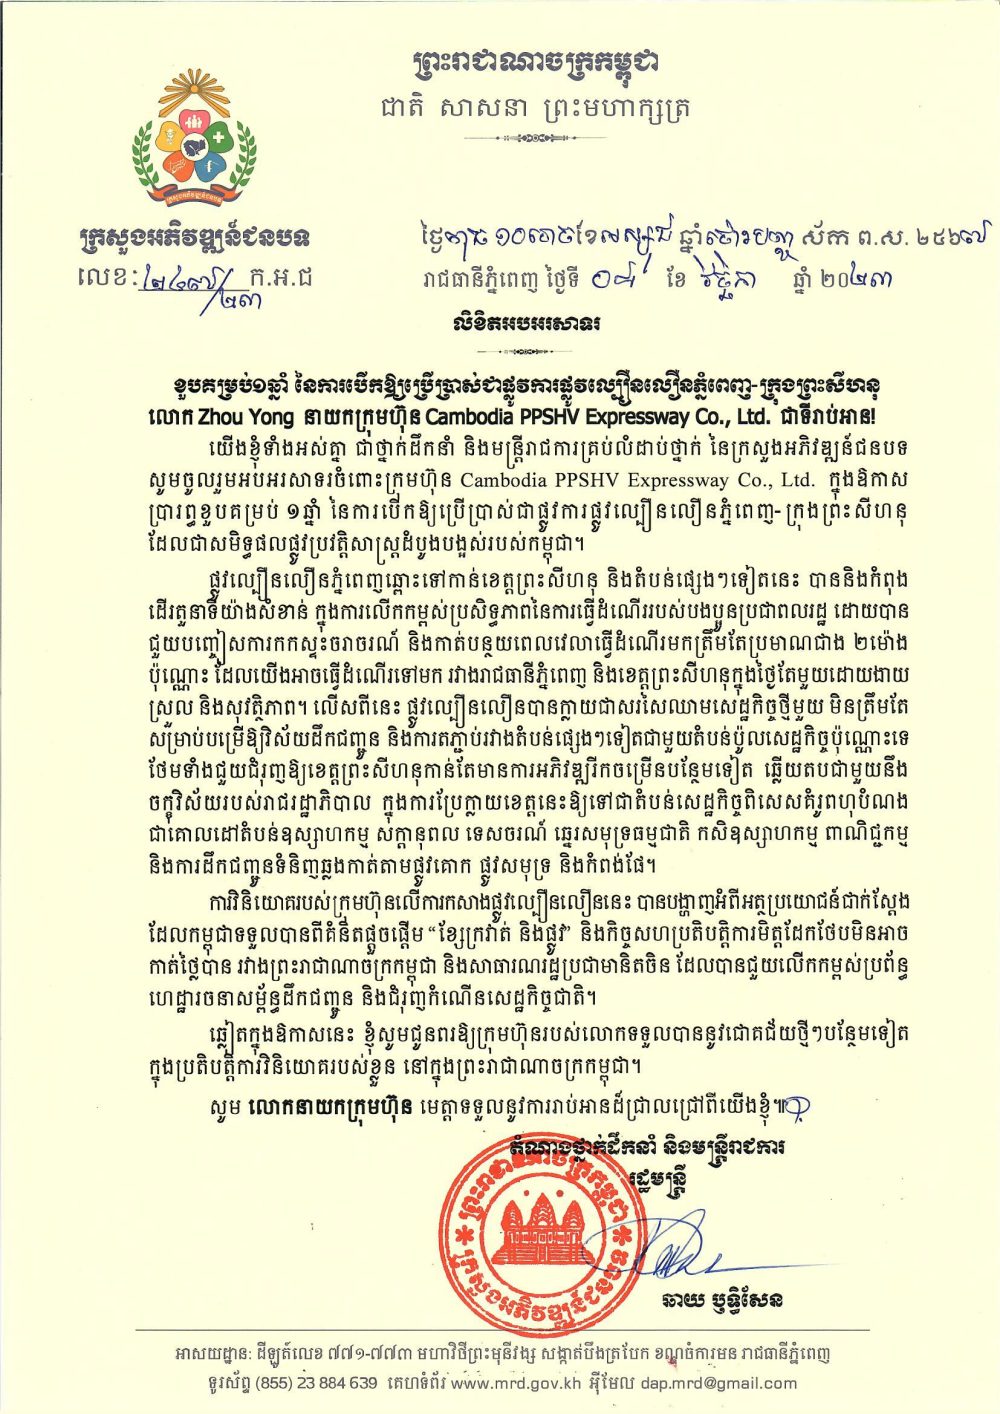 ព្រះរាជាណាចក្រកម្ពុជា
ជាតិ សាសនា ព្រះមហាក្សត្រ
ក្រសួងអភិវឌ្ឍន៍ជនបទ
លេខ: ២៤៧៧/២៣ ក.អ.ជ
ថ្ងៃពុធ ១០រោច ខែអស្សុជ ឆ្នាំថោះ បញ្ចស័ក ព.ស. ២៥៦៧
រាជធានីភ្នំពេញ ថ្ងៃទី ០៨ ខែ វិច្ឆិកា ឆ្នាំ ២០២៣
លិខិតអបអរសាទរ
ខួបគម្រប់១ឆ្នាំ នៃការបើកឱ្យប្រើប្រាស់ជាផ្លូវការផ្លូវល្បឿនលឿនភ្នំពេញ-ក្រុងព្រះសីហនុ
លោក Zhou Yong នាយកក្រុមហ៊ុន Cambodia PPSHV Expressway Co., Ltd. ជាទីរាប់អាន!
យើងខ្ញុំទាំងអស់គ្នា ជាថ្នាក់ដឹកនាំ និងមន្ត្រីរាជការគ្រប់លំដាប់ថ្នាក់ នៃក្រសួងអភិវឌ្ឍន៍ជនបទ
សូមចូលរួមអបអរសាទរចំពោះក្រុមហ៊ុន Cambodia PPSHV Expressway Co., Ltd. ក្នុងឱកាស
ប្រារព្ធខួបគម្រប់ ១ឆ្នាំ នៃការបើកឱ្យប្រើប្រាស់ជាផ្លូវការផ្លូវល្បឿនលឿនភ្នំពេញ- ក្រុងព្រះសីហនុ
ដែលជាសមិទ្ធផលផ្លូវប្រវត្តិសាស្ត្រដំបូងបង្អស់របស់កម្ពុជា។
ផ្លូវល្បឿនលឿនភ្នំពេញឆ្ពោះទៅកាន់ខេត្តព្រះសីហនុ និងតំបន់ផ្សេងៗទៀតនេះ បាននិងកំពុង
ដើរតួនាទីយ៉ាងសំខាន់ ក្នុងការលើកកម្ពស់ប្រសិទ្ធភាពនៃការធ្វើដំណើររបស់បងប្អូនប្រជាពលរដ្ឋ ដោយបាន
ជួយបញ្ចៀសការកកស្ទះចរាចរណ៍ និងកាត់បន្ថយពេលវេលាធ្វើដំណើរមកត្រឹមតែប្រមាណជាង ២ម៉ោង
ប៉ុណ្ណោះ ដែលយើងអាចធ្វើដំណើរទៅមក រវាងរាជធានីភ្នំពេញ និងខេត្តព្រះសីហនុក្នុងថ្ងៃតែមួយដោយងាយ
ស្រួល និងសុវត្ថិភាព។ លើសពីនេះ ផ្លូវល្បឿនលឿនបានក្លាយជាសរសៃឈាមសេដ្ឋកិច្ចថ្មីមួយ មិនត្រឹមតែ
សម្រាប់បម្រើឱ្យវិស័យដឹកជញ្ជូន និងការតភ្ជាប់រវាងតំបន់ផ្សេងៗទៀតជាមួយតំបន់ប៉ូលសេដ្ឋកិច្ចប៉ុណ្ណោះទេ
ថែមទាំងជួយជំរុញឱ្យខេត្តព្រះសីហនុកាន់តែមានការអភិវឌ្ឍរីកចម្រើនបន្ថែមទៀត ឆ្លើយតបជាមួយនឹង
ចក្ខុវិស័យរបស់រាជរដ្ឋាភិបាល ក្នុងការប្រែក្លាយខេត្តនេះឱ្យទៅជាតំបន់សេដ្ឋកិច្ចពិសេសគំរូពហុបំណង
ជាគោលដៅតំបន់ឧស្សាហកម្ម សក្តានុពល ទេសចរណ៍ ឆ្នេរសមុទ្រធម្មជាតិ កសិឧស្សាហកម្ម ពាណិជ្ជកម្ម
និងការដឹកជញ្ជូនទំនិញឆ្លងកាត់តាមផ្លូវគោក ផ្លូវសមុទ្រ និងកំពង់ផែ។
ការវិនិយោគរបស់ក្រុមហ៊ុនលើការកសាងផ្លូវល្បឿនលឿននេះ បានបង្ហាញអំពីអត្ថប្រយោជន៍ជាក់ស្តែង
ដែលកម្ពុជាទទួលបានពីគំនិតផ្តួចផ្តើម “ខ្សែក្រវាត់ និងផ្លូវ” និងកិច្ចសហប្រតិបត្តិការមិត្តដែកថែបមិនអាច
កាត់ថ្លៃបាន រវាងព្រះរាជាណាចក្រកម្ពុជា និងសាធារណរដ្ឋប្រជាមានិតចិន ដែលបានជួយលើកកម្ពស់ប្រព័ន្ធ
ហេដ្ឋារចនាសម្ព័ន្ធដឹកជញ្ជូន និងជំរុញកំណើនសេដ្ឋកិច្ចជាតិ។
ឆ្លៀតក្នុងឱកាសនេះ ខ្ញុំសូមជូនពរឱ្យក្រុមហ៊ុនរបស់លោកទទួលបាននូវជោគជ័យថ្មីៗបន្ថែមទៀត
ក្នុងប្រតិបត្តិការវិនិយោគរបស់ខ្លួន នៅក្នុងព្រះរាជាណាចក្រកម្ពុជា។
សូម លោកនាយកក្រុមហ៊ុន មេត្តាទទួលនូវការរាប់អានដ៏ជ្រាលជ្រៅពីយើងខ្ញុំ៕
តំណាងថ្នាក់ដឹកនាំ និងមន្ត្រីរាជការ
រដ្ឋមន្ត្រី
ព្រះរាជាណាចក្រកម្ពុជា
ក្រសួងអភិវឌ្ឍន៍ជនបទ
ឆាយ ឫទ្ធិសែន
អាសយដ្ឋាន: ដីឡូត៍លេខ ៧៧១-៧៧៣ មហាវិថីព្រះមុនីវង្ស សង្កាត់បឹងត្របែក ខណ្ឌចំការមន រាជធានីភ្នំពេញ
ទូរស័ព្ទ (855) 23 884 639 គេហទំព័រ www.mrd.gov.kh អ៊ីមែល dap.mrd@gmail.com